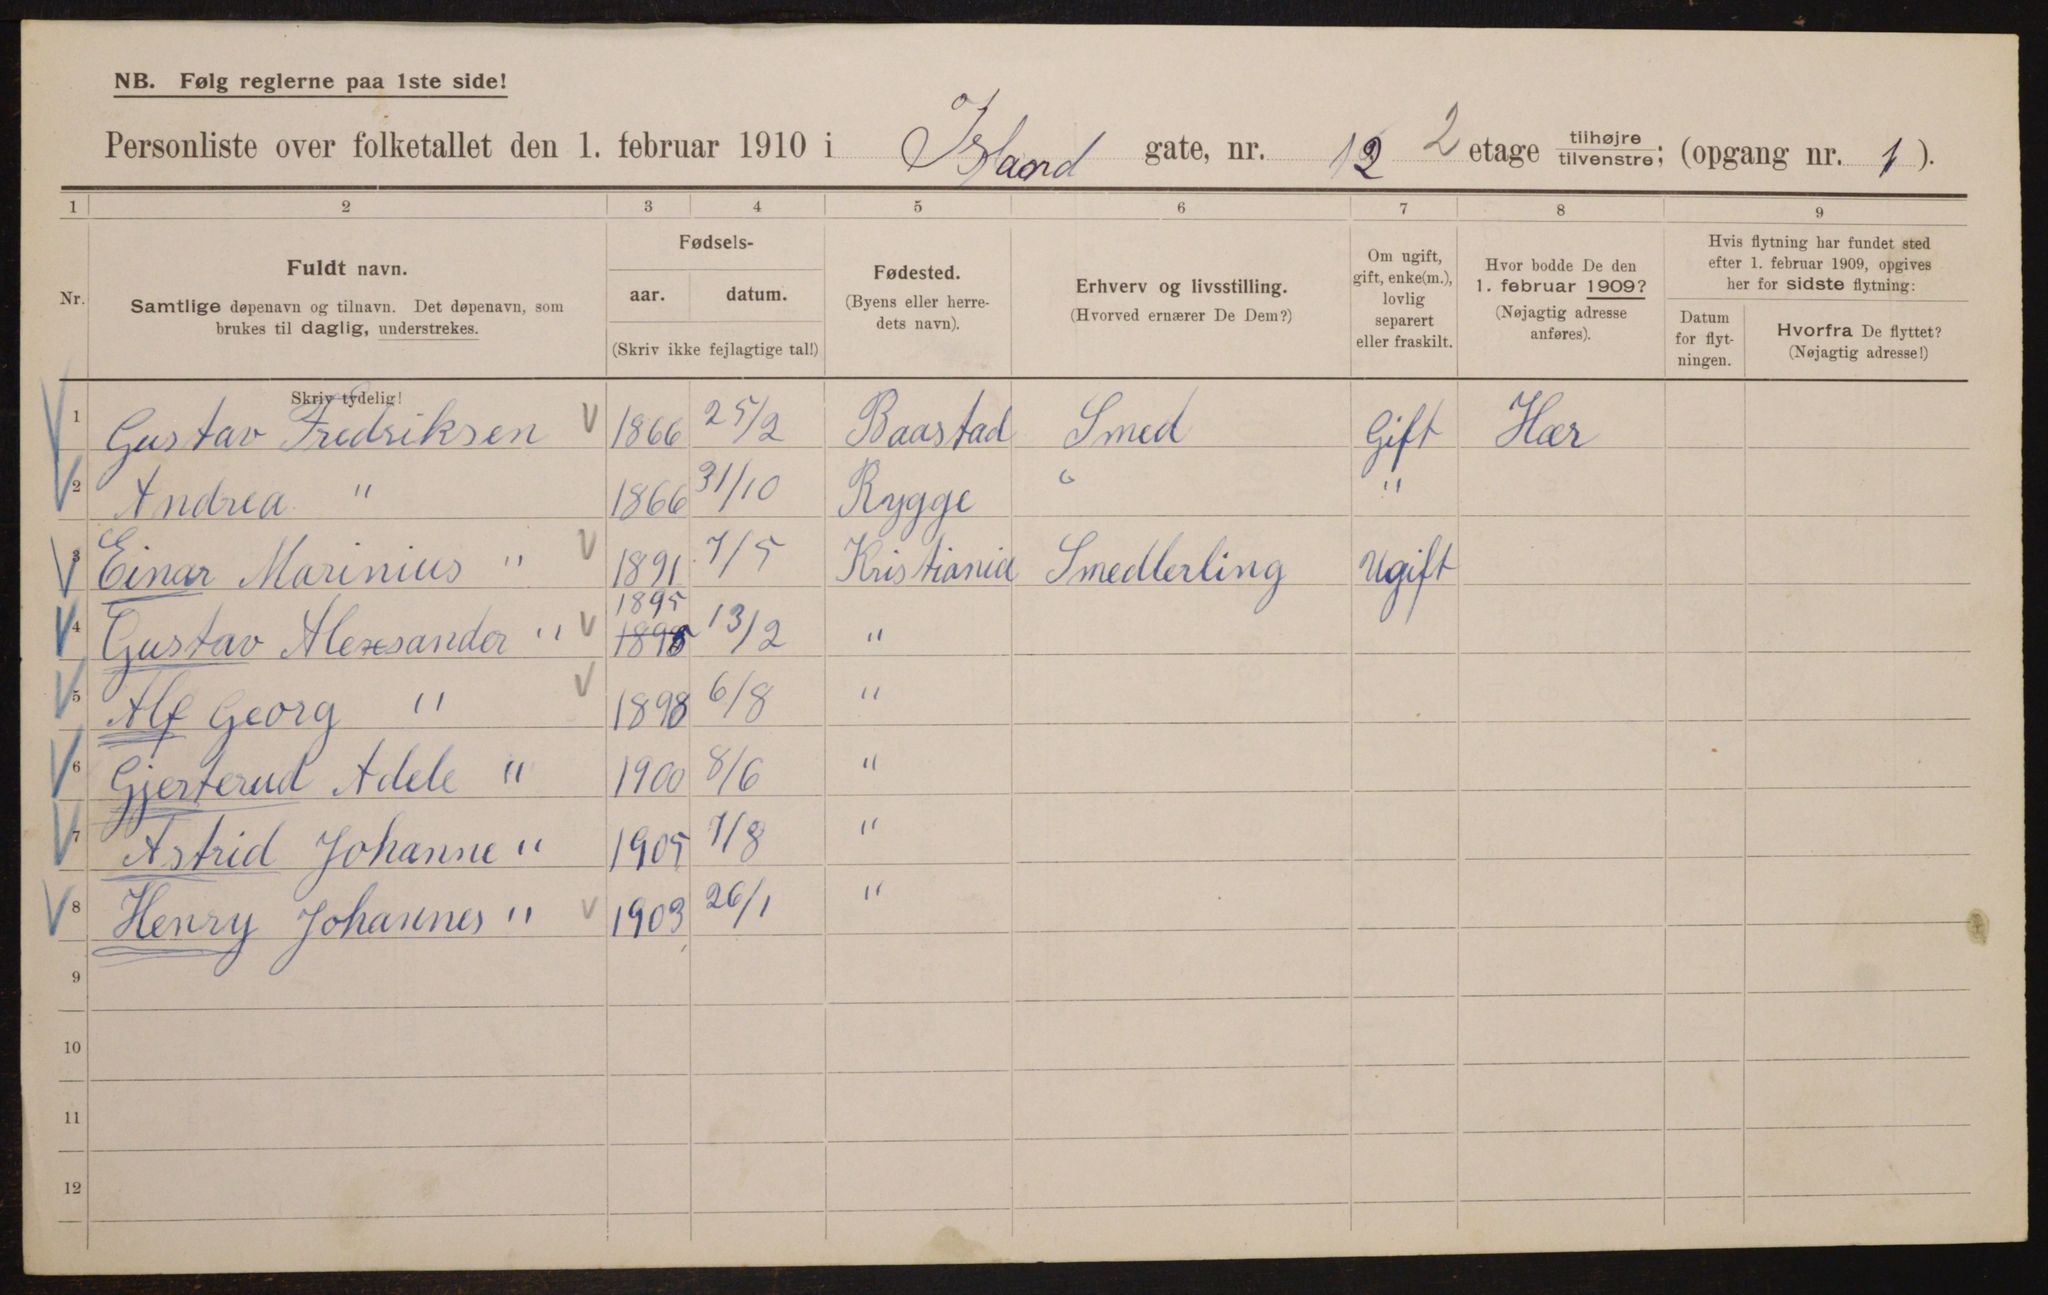 NB. Følg reglerne paa 1ste side!
Personliste over folketallet den 1. februar 1910 i Island gate, nr. 12 2 etage tilhøjre / tilvenstre; (opgang nr. 1).
1 2 3 4 5 6 7 8 9
Nr.
Fuldt navn.
Samtlige døpenavn og tilnavn. Det døpenavn, som
brukes til daglig, understrekes.
Skriv tydelig!
Fødsels-
aar. datum.
(Skriv ikke fejlagtige tal!)
Fødested.
(Byens eller herre-
dets navn).
Erhverv og livsstilling.
(Hvorved ernærer De Dem?)
Om ugift,
gift, enke(m.),
lovlig
separert
eller fraskilt.
Hvor bodde De den
1. februar 1909?
(Nøjagtig adresse
anføres).
Hvis flytning har fundet sted
efter 1. februar 1909, opgives
her for sidste flytning:
Datum
for flyt-
ningen.
Hvorfra De flyttet?
(Nøjagtig adresse!)
1 Gustav Fredriksen V 1866 25/2 Baastad Smed Gift Hær
2 Andrea " 1866 31/10 Rygge " "
3 Einar Marinius " V 1891 7/5 Kristiania Smedlerling Ugift
1895
4 Gustav Alexsander " V 1895 13/2 "
5 Alf Georg " V 1898 6/8 "
6 Gjerterud Adele " 1900 8/6 "
7 Astrid Johanne " 1905 7/8 "
8 Henry Johannes " V 1903 26/1 "
9
10
11
12